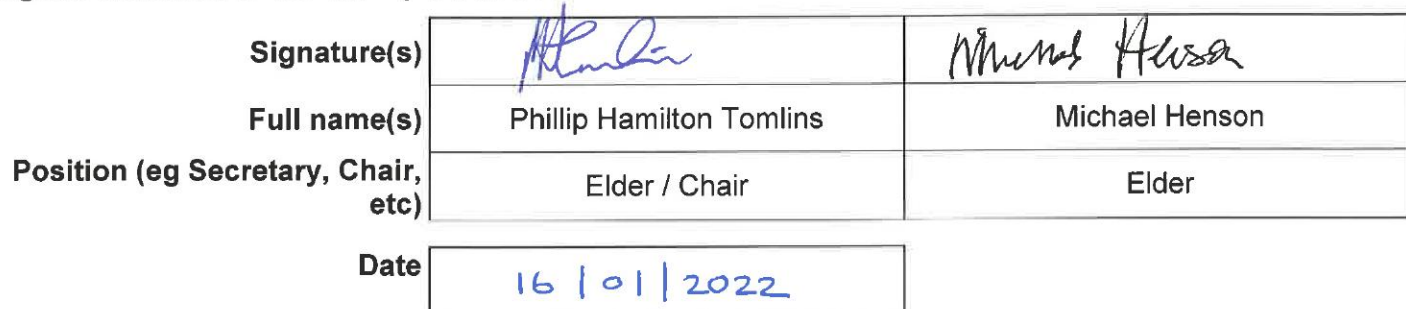 Signature(s)
Michael Henson
Full name(s) Phillip Hamilton Tomlins Michael Henson
Position (eg Secretary, Chair, etc) Elder / Chair Elder
Date 16 | 01 | 2022